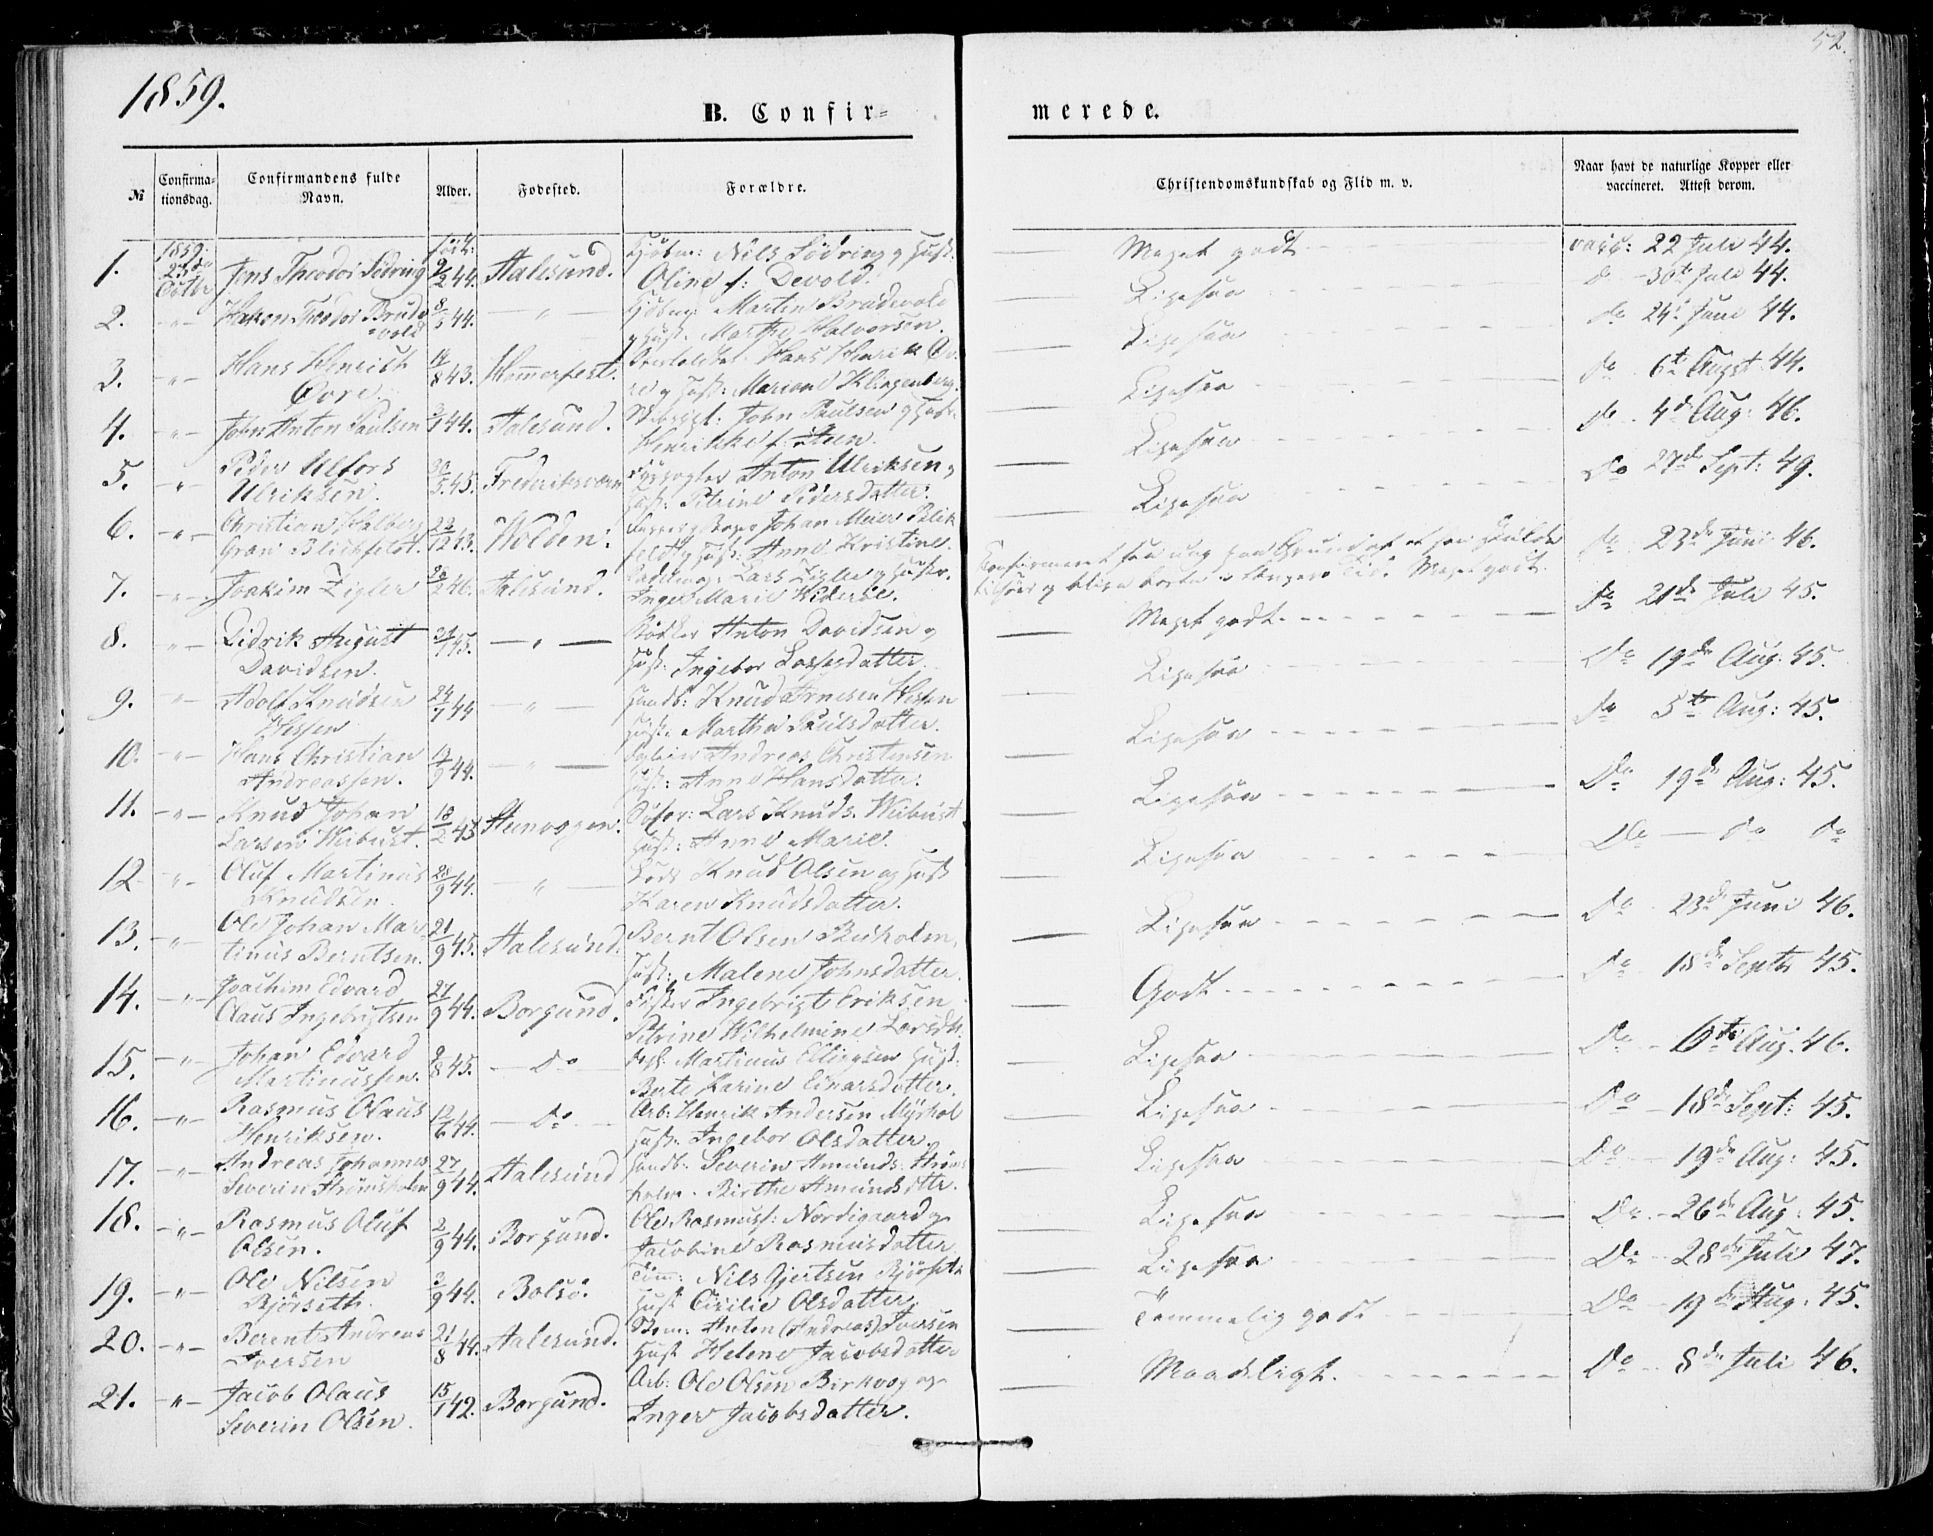 1859.
52.
B. Confir=
merede.
№
Confirma-
tionsdag.
Confirmandens fulde
Navn.
Alder.
Fødested.
Forældre.
Christendomskundskab og Flid m. v.
Naar havt de naturlige Kopper eller
vaccineret. Attest derom.
1. 1859. Jens Theodor Södring 9/2 44. Aalesund. Nils Södring og Hust.
Oline f: Devold.
Meget godt
vacc: 22 Juli 44.
2. -"- Hakon Theodor Brude
=vold 8/5 44. —"— Martin Brudevold
og Hust. Marthe Halvorsen.
Ligesaa
do 30te Juli 44.
3. -"- Hans Henrich
Øvre 14/8 43. Hammerfest. Hans Henrik Øv-
re og Hust: Mariane Klingenberg.
Ligesaa
do 24de Juni 44.
4. -"- John Anton Paulsen 44. Aalesund. John Paulsen og Hust.
Henrikke f: Aen.
Ligesaa
do 6te Augst 44.
5. -"- Peder Ulfers
Ulriksen. 30/5 45. Frederiksværn Anton Ulriksen og
Hust: Petrine Pedersdatter.
Ligesaa
do 4de Aug: 46.
6. -"- Christian Halberg
Gran Blichfeldt. 23/12 43. Volden. Johan Meier Blik
feldt og Hust: Anne Kristine.
Ligesaa
do 27de Sept: 49.
7. -"- Joakim Zigler 46. Aalesund. Lars Zigler og Hustr.
Inger Marie Widerøe.
Confirmeret saa ung paa Grund af at han skulde
tilsøes og blive borte i længere Tid. Meget godt.
do 23de Juni 46.
8. -"- Didrik August
Davidsen. 45. —"— Bødker Anton Davidsen og
Hust: Ingebor Lassesdatter.
Meget godt.
do 21de Juli 45.
9. -"- Adolf Knudsen
Hessen 24/7 44 —"— Handb: Knud Arnesen Hessen
Hust. Martha Paulsdatter.
Ligesaa
Do 19de Aug: 45.
10. -"- Hans Christian
Andreassen. 9 44. —"— Andreas Christensen
Hust: Anne Hansdatter.
Ligesaa
do 5te Aug: 45.
11. -"- Knud Johan
Larsen Weibust. 18/2 45 Steenvogen. Lars Knuds. Weibust
Hust: Anne Marie.
Ligesaa
Do 19de Aug: 45.
12 -"- Oluf Martinus
Knudsen. 28/9 44. —"— Lods Knud Olsen og Hust
Karen Knudsdatter.
Ligesaa
Do — do do
13. -"- Ole Johan Mar-
tinus Berntsen. 21/9 45. Aalesund. Bernt Olsen Buholm.
Hust: Malene Johnsdatter.
Ligesaa
Do 23de Juni 46.
14. -"- Joachim Edvard
Claus Ingebrigtsen 27/9 44. Borgund. Fisker Ingebrigt Eriksen
Petrine Wilhelmine Larsdtr.
Godt
Do 18de Septr 45.
15. -"- Johan Edvard
Martinussen. 45. —Do— Martinus Elligsen Hust.
Berte Karine Einarsdatter.
Ligesaa
Do 6te Aug. 46.
16. -"- Rasmus Olaus
Henriksen. 12/6 44. —Do— Arb: Henrik Andersen Myrhol
Hust. Ingebor Olsdatter.
Ligesaa
Do 18de Sept: 45.
17. -"- Andreas Johannes
Severin Strömsholm 27/9 44. Aalesund Handb: Severin Amunds: Ströms
holm. Birthe Amundsdtter.
Ligesaa
Do 19de Aug: 45.
18. -"- Rasmus Oluf
Olsen. 2/9 44. Borgund. Ole Rasmuss: Nordigaard og
Jacobine Rasmusdatter
Ligesaa
Do 26de Aug: 45.
19. -"- Ole Nilsen
Björseth. 9 44. Bolsö. Töm: Nils Gjertsen Björseth
Hust Cicilie Olsdatter.
Ligesaa
Do 28de Juli 47.
20. -"- Berent Andreas
Iversen 21/8 44. Aalesund. Anton (Andreas) Iversen
Hust Helene Jacobsdatter
Temmelig godt
Do 19de Aug: 45.
21. -"- Jacob Olaus
Severin Olsen. 15/1 42. Borgund. Arb: Ole Olsen Birkvog og
Inger Jacobsdatter.
Maadeligt.
Do 8de Juli 46.